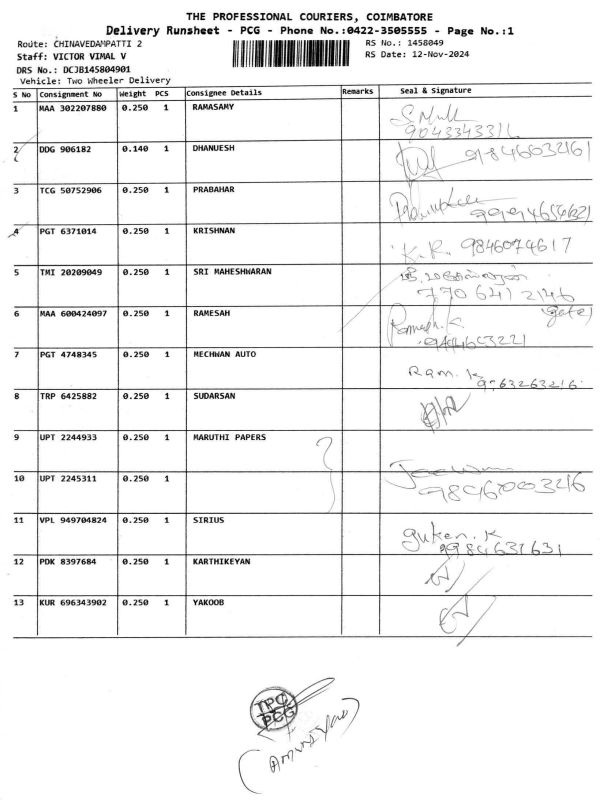 THE PROFESSIONAL COURIERS, COIMBATORE
Delivery Runsheet - PCG - Phone No.:0422-3505555 - Page No.:1
Route: CHINAVEDAMPATTI 2 RS No.: 1458049
Staff: VICTOR VIMAL V RS Date: 12-Nov-2024
DRS No.: DCJB145804901
Vehicle: Two Wheeler Delivery
S No Consignment No Weight PCS Consignee Details Remarks Seal & Signature
1 MAA 302207880 0.250 1 RAMASAMY
2 DDG 906182 0.140 1 DHANUESH
3 TCG 50752906 0.250 1 PRABAHAR
4 PGT 6371014 0.250 1 KRISHNAN K.R. 9846074617
5 TMI 20209049 0.250 1 SRI MAHESHWARAN
770 641 2146
6 MAA 600424097 0.250 1 RAMESAH Ramesh.K (gate)
7 PGT 4748345 0.250 1 MECHWAN AUTO Ram.K
9763263216
8 TRP 6425882 0.250 1 SUDARSAN
9 UPT 2244933 0.250 1 MARUTHI PAPERS
10 UPT 2245311 0.250 1
11 VPL 949704824 0.250 1 SIRIUS
9984631631
12 PDK 8397684 0.250 1 KARTHIKEYAN
13 KUR 696343902 0.250 1 YAKOOB
TPC
PCG